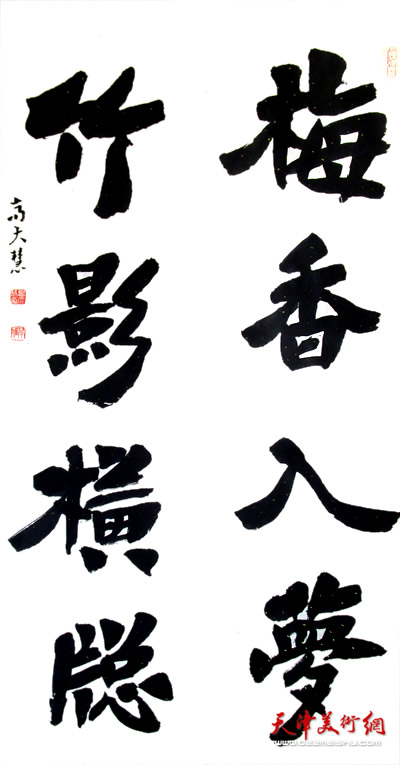 梅香入夢
竹影橫牕
高天慧
天津美術網